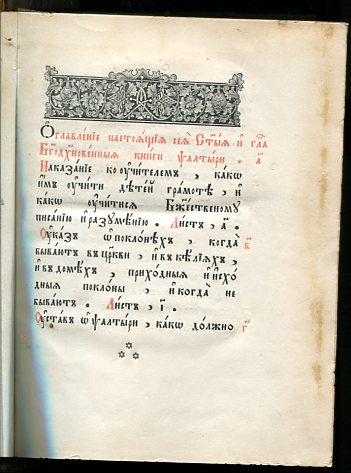 Ѻглавле́нїе настоѧ́щїѧ сеѧ̀ Ст҃ы́ѧ и҆ гла
Бг҃одꙋхнове́нныѧ кни́ги ѱалты́ри . а҃
Наказа́нїе ко ᲂу҆чи́телемъ , ка́кѡ
и҆̀мъ ᲂу҆чи́ти дѣте́й гра́мотѣ , и҆
ка́кѡ ᲂу҆чи́тисѧ Бж҃е́ственомꙋ
писа́нїю и҆ разꙋмѣ́нїю . Ли́стъ , а҃ .
Оу҆ка́зъ ѡ҆ покло́нѣхъ , когда̀ в҃
быва́ютъ въ цр҃кви , и҆ въ ке́лїѧхъ ,
и҆ въ домѣ́хъ , прихо́дныѧ и҆ и҆схо́
дныѧ покло́ны , и҆ когда̀ не
быва́ютъ . Ли́стъ , і҃ .
Оу҆ста́въ ѡ҆ ѱалты́ри , ка́кѡ до́лжно г҃